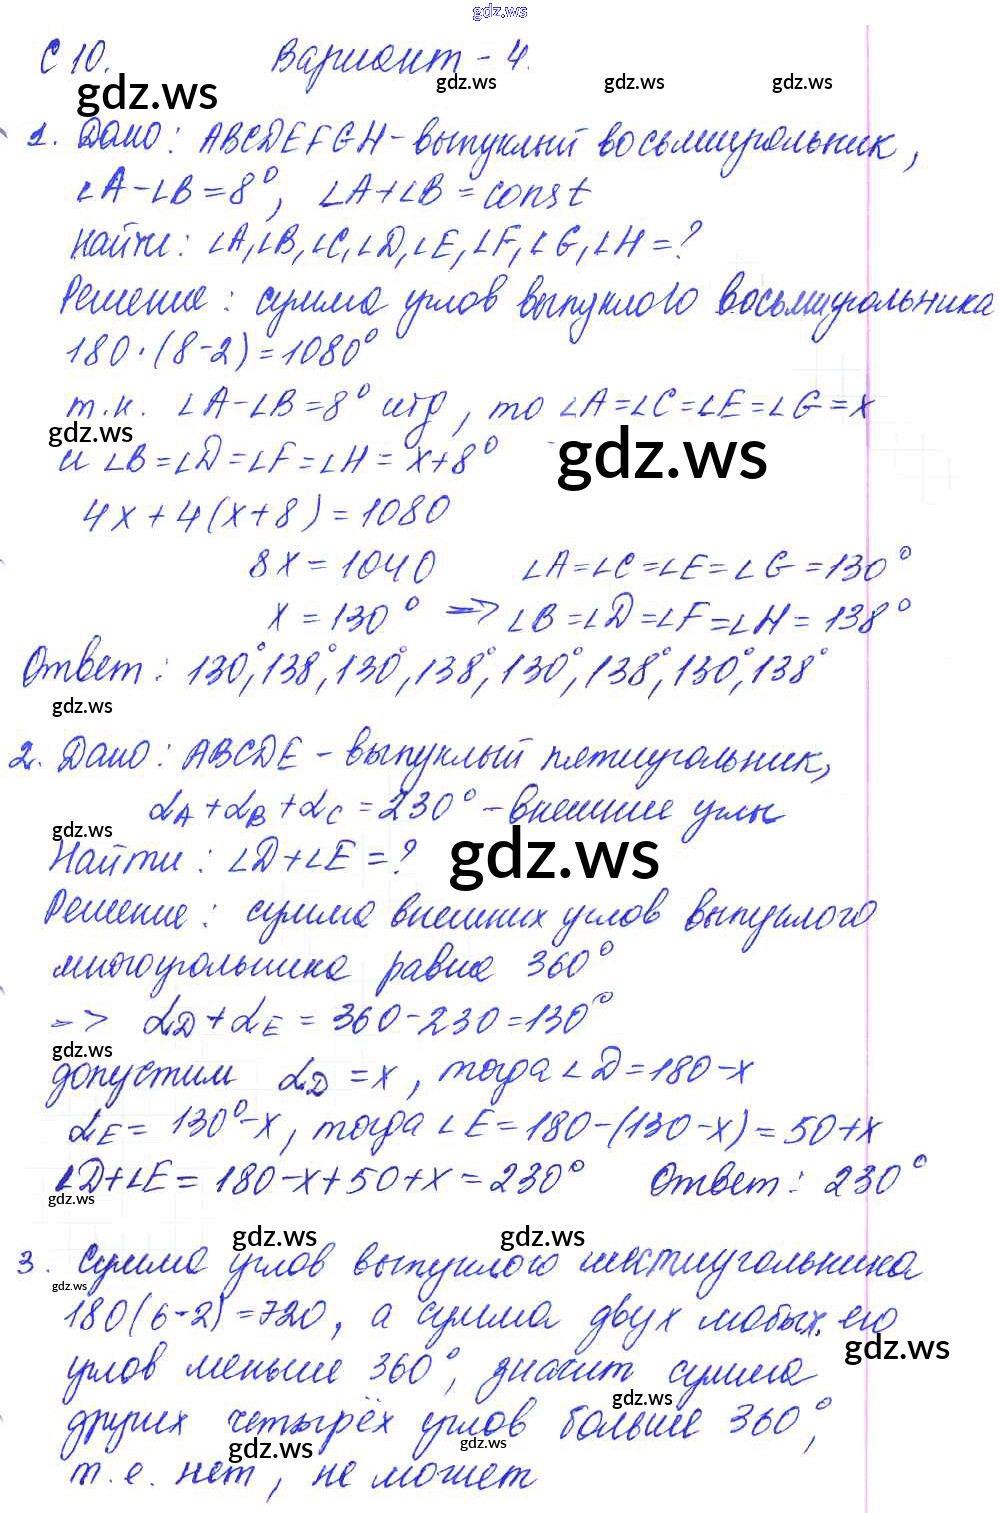 gdz.ws
С 10. Вариант - 4.
gdz.ws gdz.ws gdz.ws gdz.ws
1. Дано: ABCDEFGH - выпуклый восьмиугольник,
∠A-∠B=8°, ∠A+∠B=const
Найти: ∠A,∠B,∠C,∠D,∠E,∠F,∠G,∠H=?
Решение: сумма углов выпуклого восьмиугольника
180·(8-2)=1080°
т.к. ∠A-∠B=8° итд, то ∠A=∠C=∠E=∠G=x
gdz.ws
и ∠B=∠D=∠F=∠H=x+8°
gdz.ws
4x+4(x+8)=1080
8x=1040 ∠A=∠C=∠E=∠G=130°
x=130° => ∠B=∠D=∠F=∠H=138°
Ответ: 130°,138°,130°,138°,130°,138°,130°,138°
gdz.ws
2. Дано: ABCDE - выпуклый пятиугольник,
∠A+∠B+∠C=230° - внешние углы
gdz.ws
Найти: ∠D+∠E=?
gdz.ws
Решение: сумма внешних углов выпуклого
многоугольника равна 360°
=> ∠D+∠E=360-230=130°
gdz.ws
допустим ∠D=x, тогда ∠D=180-x
∠E=130°-x, тогда ∠E=180-(130-x)=50+x
∠D+∠E=180-x+50+x=230° Ответ: 230°
gdz.ws
gdz.ws gdz.ws
3. Сумма углов выпуклого шестиугольника
gdz.ws
180(6-2)=720, а сумма двух любых его
gdz.ws
углов меньше 360°, значит сумма
gdz.ws
других четырёх углов больше 360°,
gdz.ws gdz.ws
т.е. нет, не может